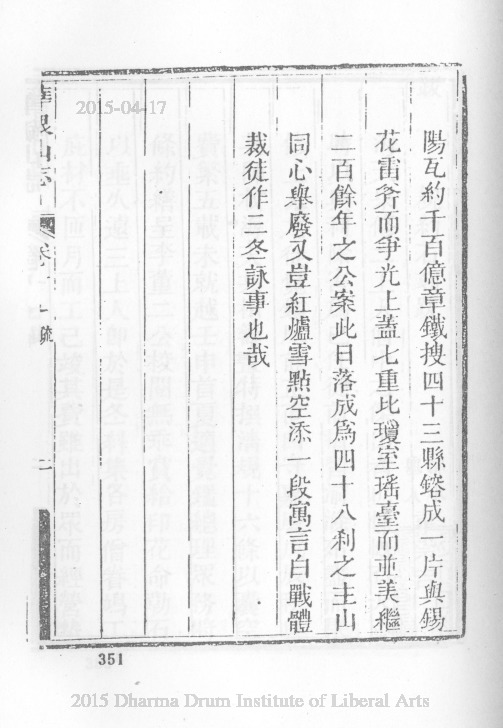 陽瓦約千百億章鐵搜四十三縣鎔成一片與錫
花雷斧而爭光上蓋七重比瓊室瑤臺而並美繼
二百餘年之公案此日落成爲四十八刹之主山
同心舉廢又豈紅爐雪點空添一段寓言白戰體
裁徒作三冬詠事也哉
華銀山志
卷十一 疏
二
351
2015-04-17
2015 Dharma Drum Institute of Liberal Arts